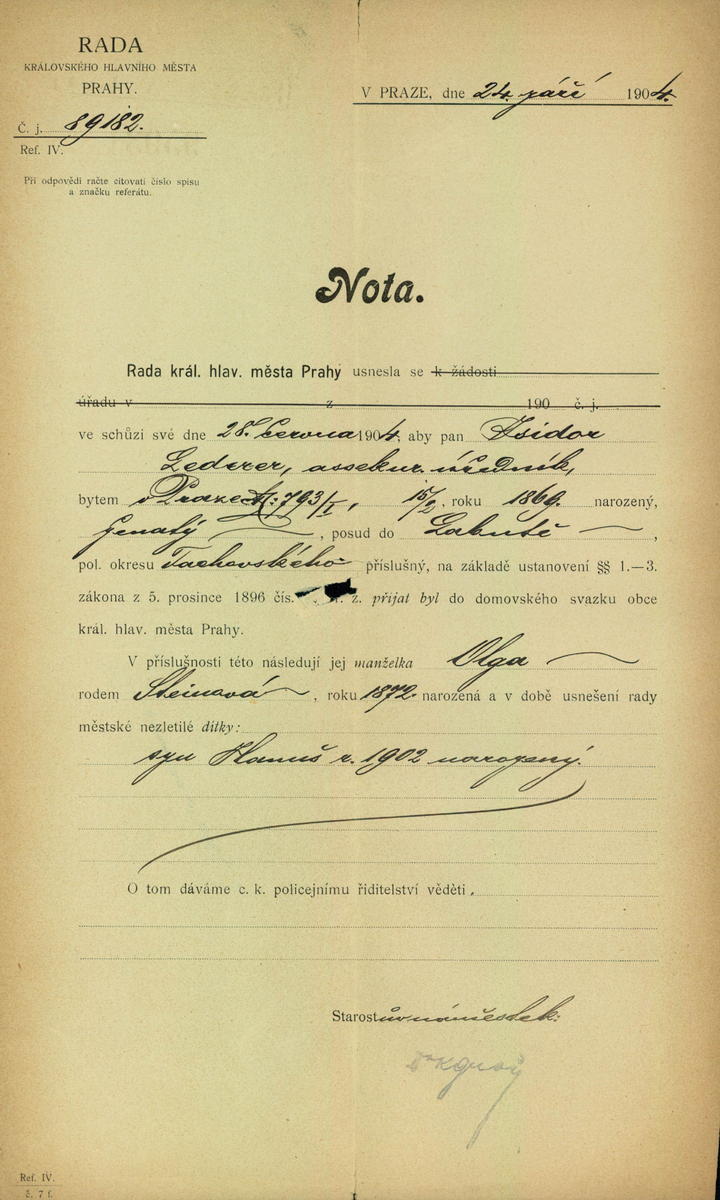 RADA
KRÁLOVSKÉHO HLAVNÍHO MĚSTA
PRAHY.
V PRAZE, dne 24. září 1904.
Č. j. 89182.
Ref. IV.
Při odpovědi račte citovati číslo spisu
a značku referátu.
Nota.
Rada král. hlav. města Prahy usnesla se k žádosti
úřadu v z 190 č. j.
ve schůzi své dne 28. června 1904, aby pan Isidor
Lederer, assekur. úředník,
bytem v Praze čp. 793/I, 15/2, roku 1869. narozený,
ženatý, posud do
pol. okresu Tachovského příslušný, na základě ustanovení §§ 1.—3.
zákona z 5. prosince 1896 čís. z. přijat byl do domovského svazku obce
král. hlav. města Prahy.
V příslušnosti této následují jej manželka Olga
rodem Steinová, roku 1872. narozená a v době usnešení rady
městské nezletilé dítky:
syn Hanuš r. 1902 narozený.
O tom dáváme c. k. policejnímu řiditelství věděti.
Starostův náměstek:
Ref. IV.
č. 7 f.